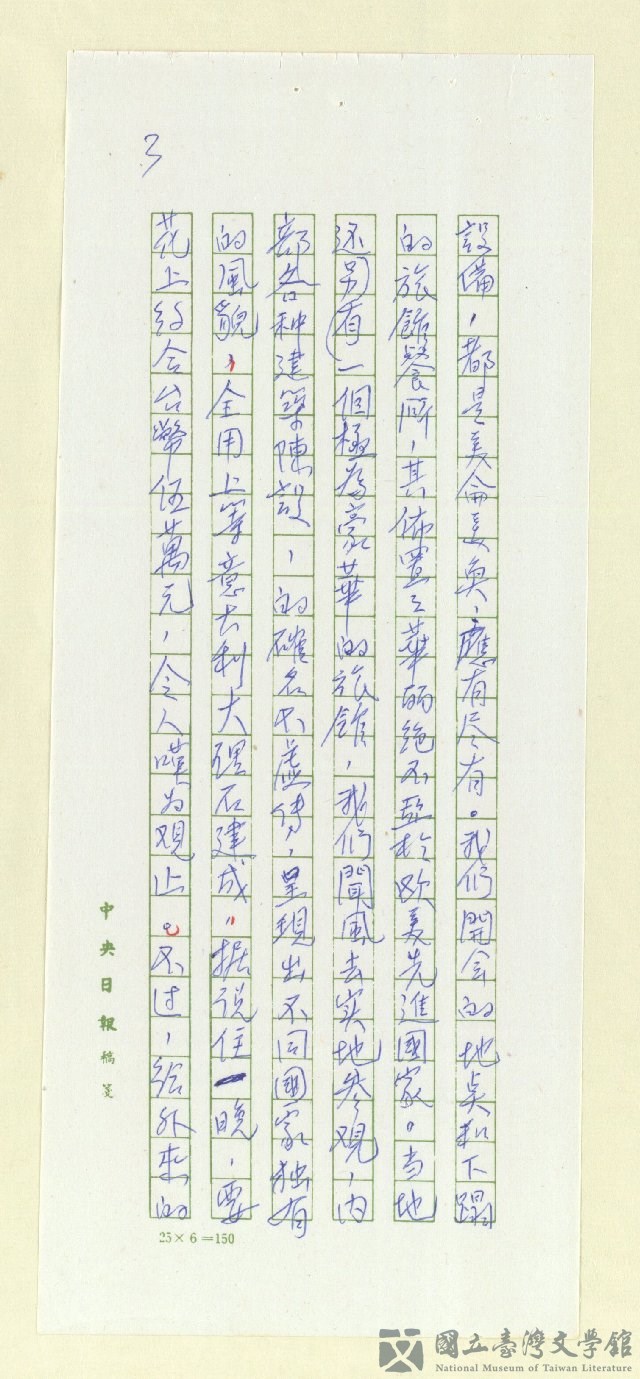 3
設備，都是美侖美奐，應有尽有。我们開会的地点和下蹋
的旅館餐所，其佈置之華丽絶不亞於欧美先進國家。当地
还另有一個極為豪華的旅館，我们聞風去实地参观，内
部各种建築陳設，的確名不虛傳，呈現出不同國家独有
的風貌，全用上等意大利大理石建成。据说住一晚，要
花上约合台幣伍萬元，令人嘆为观止。不过，给外来的
中央日報稿箋
25×6=150
國立臺灣文學館
National Museum of Taiwan Literature